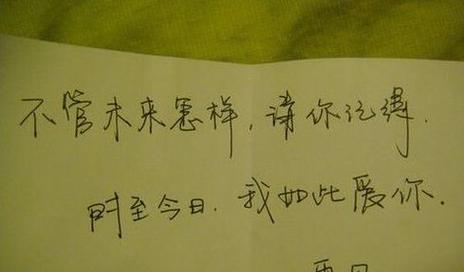 不管未来怎样，请你记得.
时至今日.我如此爱你.